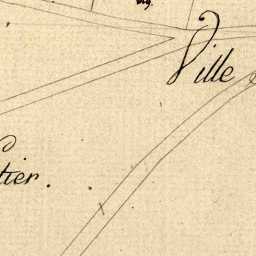 Ville
tier.